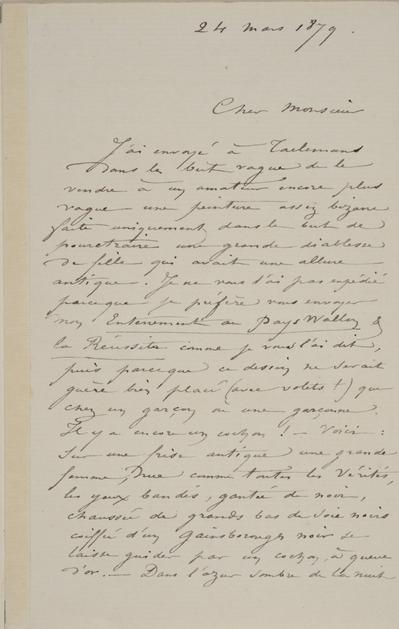 24 mars 1879.
Cher Monsieur
J'ai envoyé à Taelemans
dans le but vague de le
vendre à un amateur encore plus
vague une peinture assez bizarre
faite uniquement dans le but de
pourctraire une grande diablesse
de fille qui avait une allure
antique. Je ne vous l'ai pas expédié
parceque je préfère vous envoyer
mon Enterrement au Pays Wallon &
la Réussite comme je vous l'ai dit,
puis parceque ce dessin ne serait
guère bien placé (avec volets !) que
chez un garçon ou une garçonne.
Il y a encore un cochon ! – Voici :
Sur une frise antique une grande
femme, nue comme toutes les Vérités,
les yeux bandés, gantée de noir,
chaussée de grands bas de soie noirs
coiffée d'un Gainsborough noir se
laisse guider par un cochon, à queue
d'or. — Dans l'azur sombre de la nuit